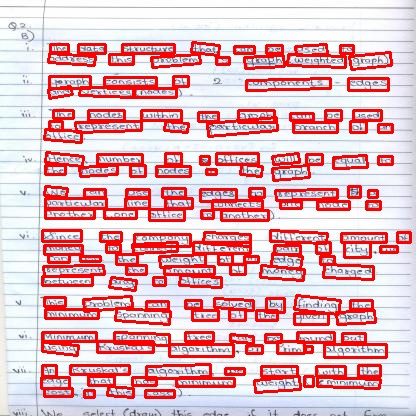 Q.2.
B)
i. The data structure that can be used to
address this problem is graph (weighted graph)
ii. graph consists of 2 components - edges
and vertices (nodes)
iii. The nodes within the graph can be used
to represent the particular branch of an
office
iv. Hence, number of offices will be equal to
the nodes of nodes in the graph
v. We can use the edges to represent
particular line that connects one
another (one office to another)
vi. Since the company charges different amount of
money to different city,
the weight of edge
represent the amount of money charged
between offices
v. This problem can be solved by finding the
minimum spanning tree of the given graph
vi. Minimum spanning tree can be found out
using Kruskal's algorithm or Prim's algorithm
vii. In Kruskal's algorithm we start with the
edge that has minimum weight (minimum
in this case)
viii. We select (draw) this edge if it does not form